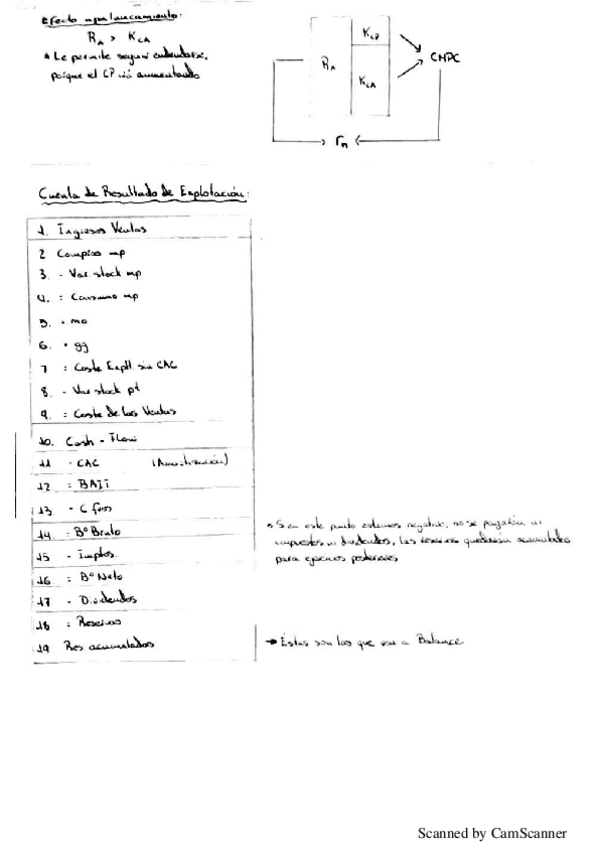 Efecto apalancamiento:
RA > KCA
* Le permite seguir endeudarse,
porque el CP irá aumentado
KCP
RA
CMPC
KCA
rn
Cuenta de Resultado de Explotación:
1. Ingresos Ventas
2 Compras mp
3. - Var. stock mp
4. = Consumo mp
5. + mo
6. + gg
7 = Coste Expl. sin CAC
8. - Var stock pt
9. = Coste de las Ventas
10. Cash - Flow
11 - CAC (Amortización)
12 = BAII
13 - C fros
14. = Bº Bruto
15 - Imptos.
16 = Bº Neto
17 - Dividendos
18 = Reservas
19 Res acumulados
• Si en este punto estamos negativo, no se pagarán ni
impuestos ni dividendos, las reservas quedarán acumulados
para ejercicios posteriores
→ Éstas son las que van a Balance
Scanned by CamScanner